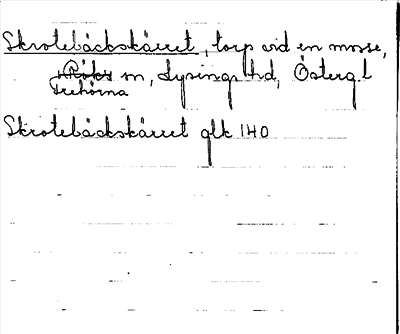 Skrotebäckskärret, torp vid en mosse,
Röks sn, Lysings hd, Österg. l
Trehörna
Skrotebäckskärret glk 140